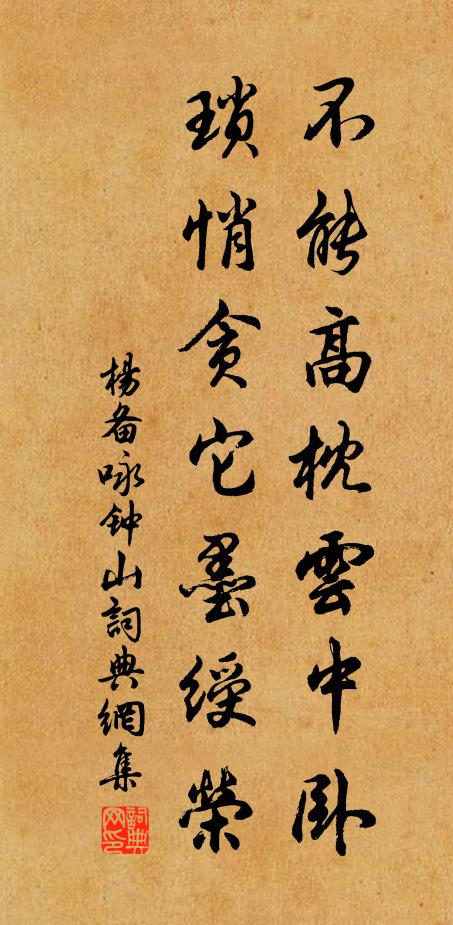 不能高枕雲中卧
瑣悄貪它墨綬榮
楊备咏钟山詞典網集
詞典网印